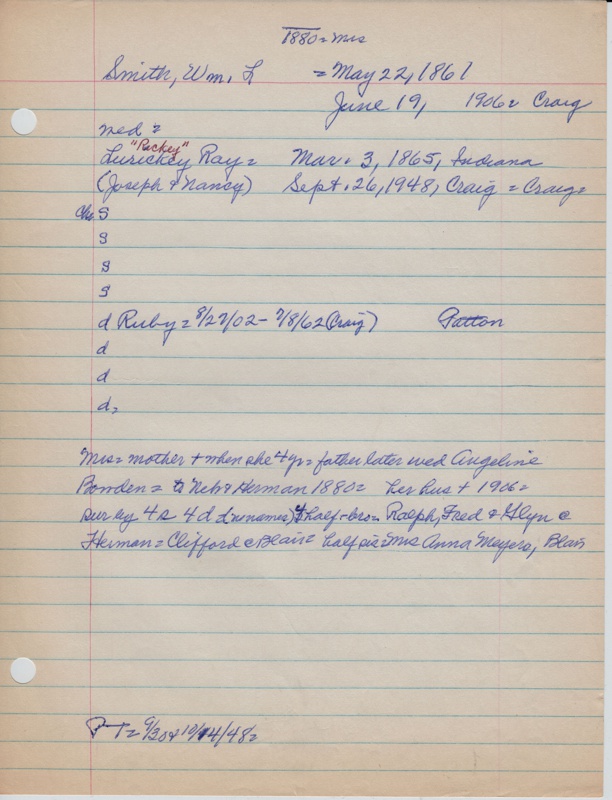 1880 = Mrs
Smith, Wm. L = May 22, 1861
June 19, 1906 = Craig
wed =
"Rickey"
Lurickey Ray = Mar. 3, 1865, Indiana
(Joseph & Nancy) Sept. 26, 1948, Craig = Craig =
Chs S
S
S
S
d Ruby = 8/27/02 - 7/8/62 (Craig) Patton
d
d
d =
Mrs = mother + when she 4 yr = father later wed Angeline
Bowden = to Neb & Herman 1880 = her hus + 1906 =
sur by 4 s 4 d (no names) half-bros Ralph, Fred & Glyn c
Herman = Clifford c Blair = half sis = Mrs Anna Meyers, Blair
P T = 9/30 & 10/14/48 =